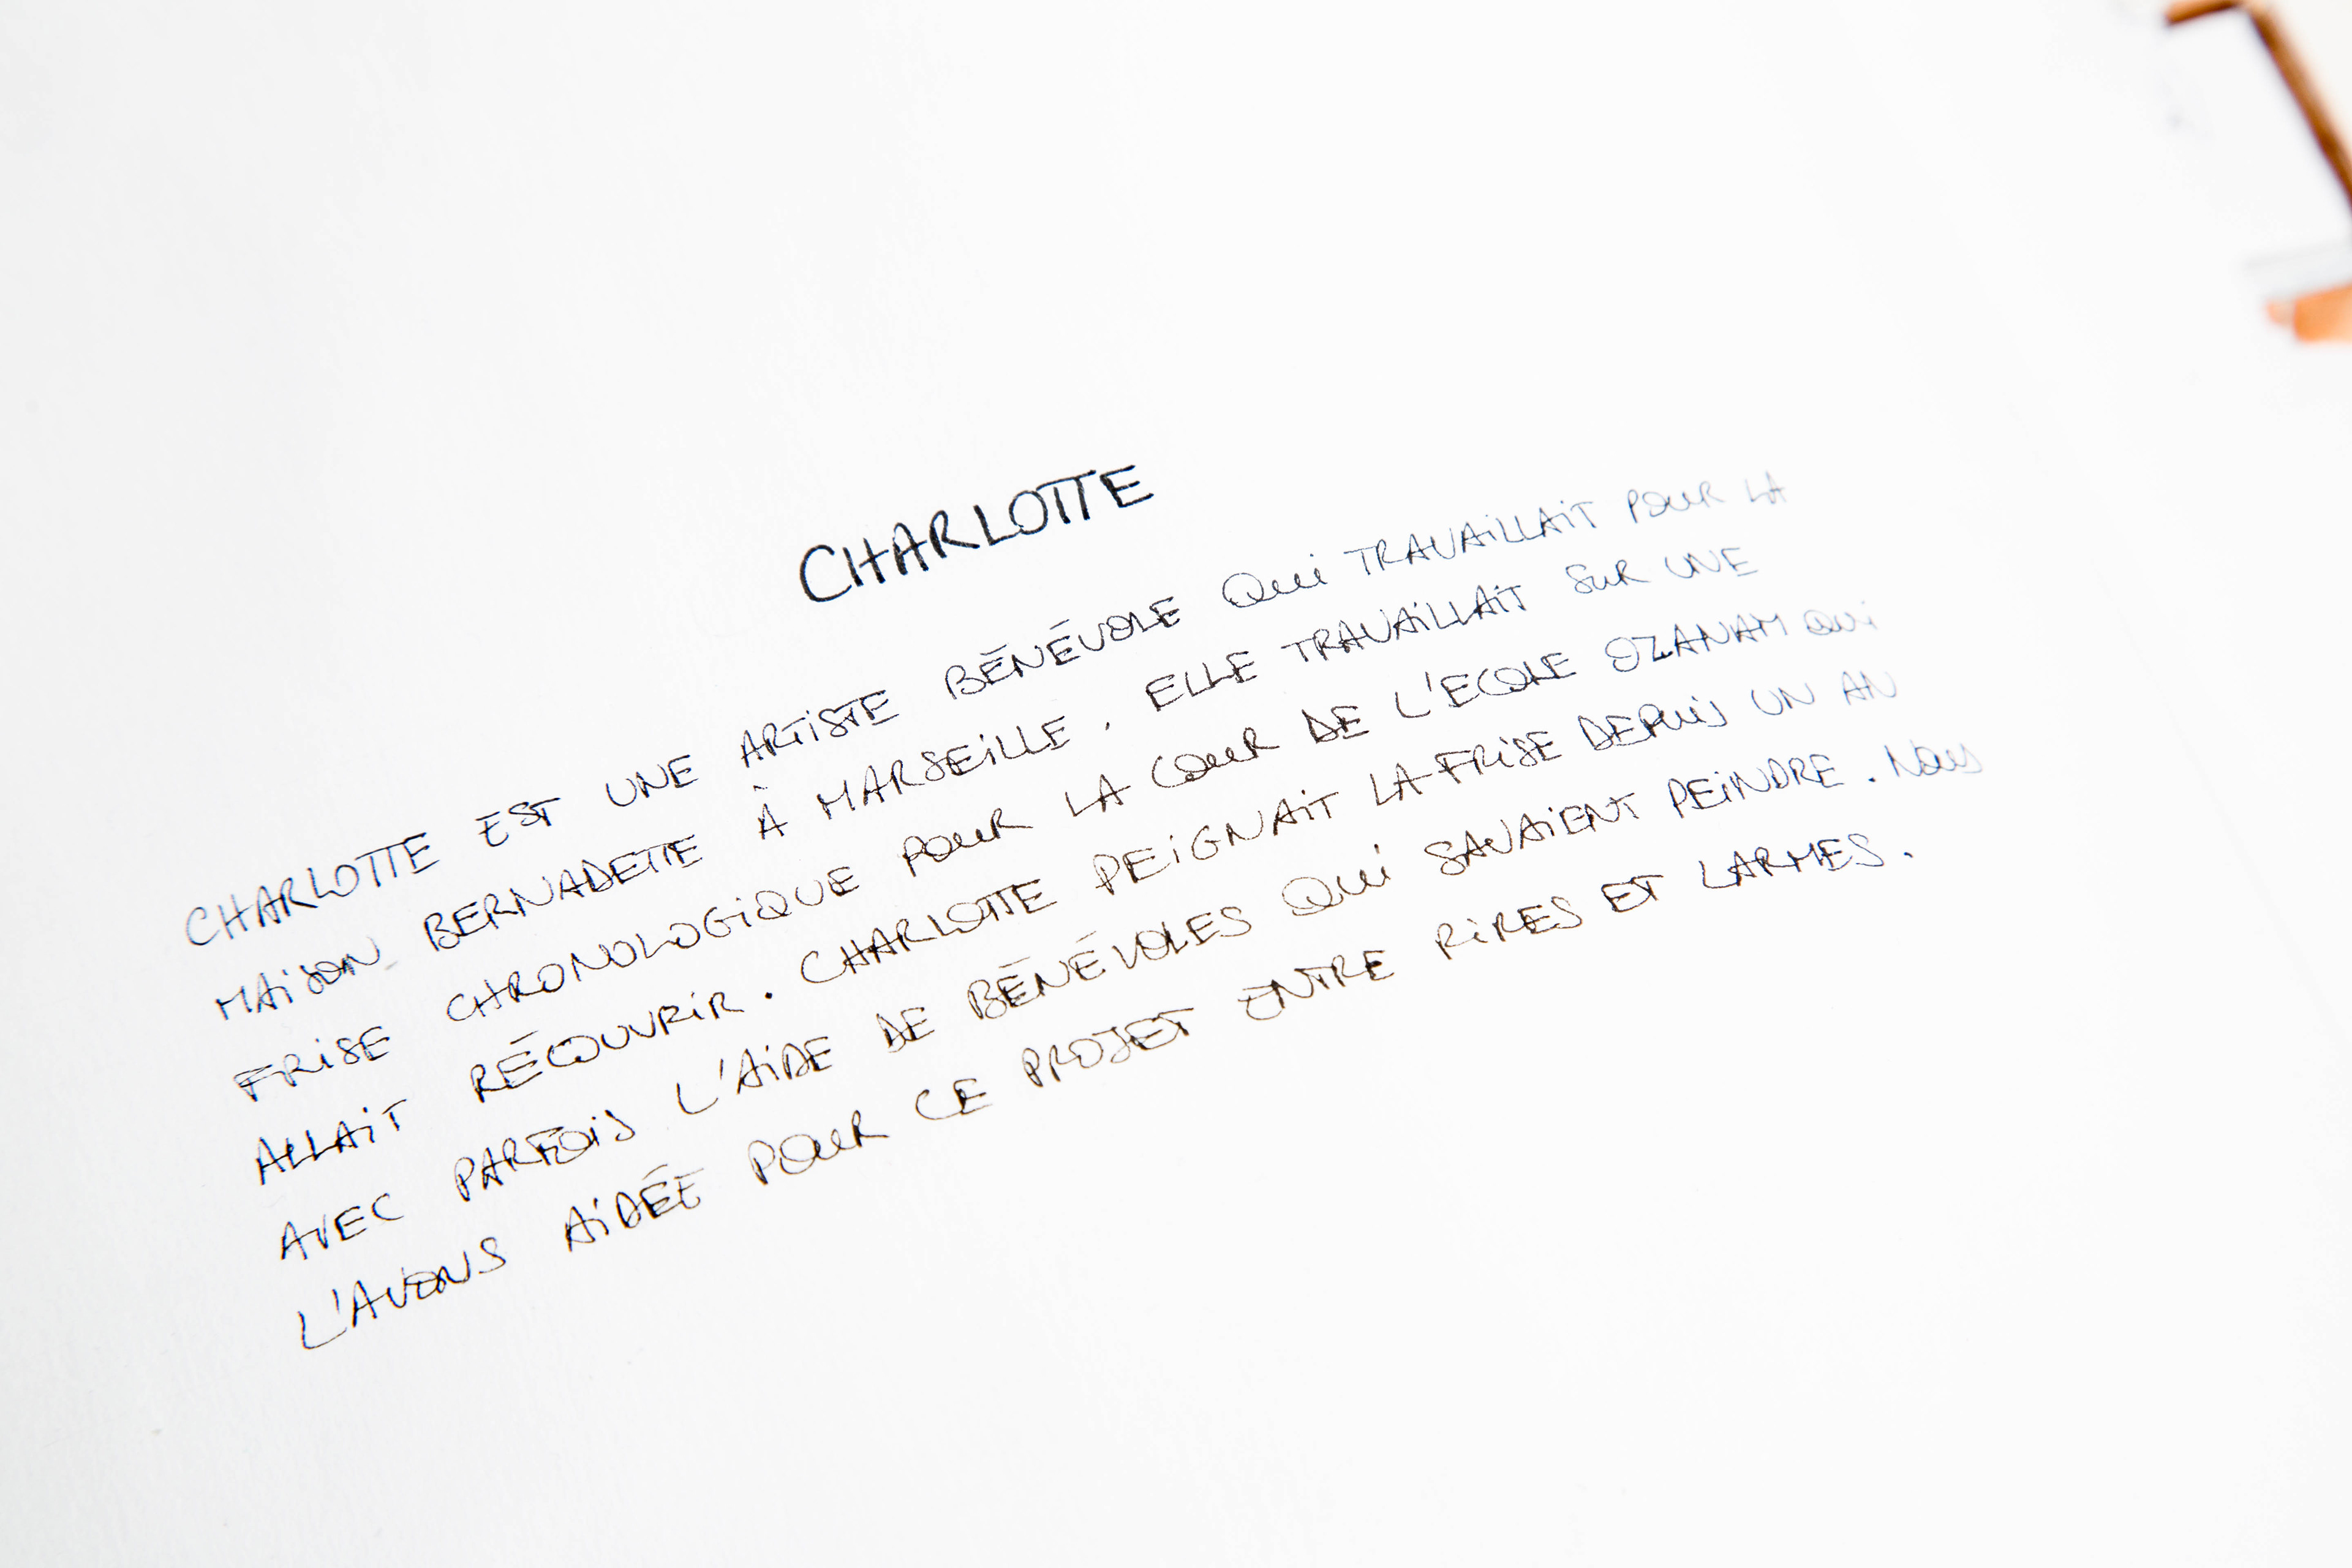 CHARLOTTE
CHARLOTTE EST UNE ARTISTE BÉNÉVOLE QUI TRAVAILLAIT POUR LA
MAISON BERNADETTE À MARSEILLE. ELLE TRAVAILLAIT SUR UNE
FRISE CHRONOLOGIQUE POUR LA COUR DE L'ECOLE OZANAM QUI
ALLAIT RÉCOUVRIR. CHARLOTTE PEIGNAIT LA FRISE DEPUIS UN AN
AVEC PARFOIS L'AIDE DE BÉNÉVOLES QUI SAVAIENT PEINDRE. NOUS
L'AVONS AIDÉE POUR CE PROJET ENTRE RIRES ET LARMES.